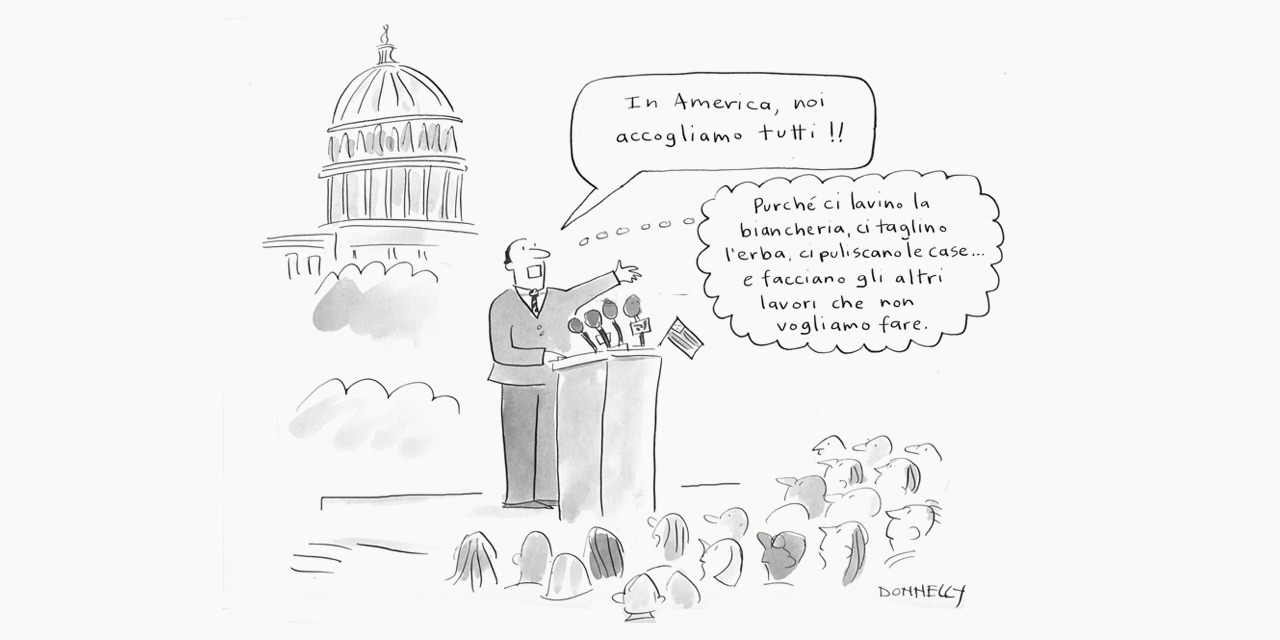 In America, noi
accogliamo tutti !!
Purché ci lavino la
biancheria, ci taglino
l'erba, ci puliscano le case...
e facciano gli altri
lavori che non
vogliamo fare.
DONNELLY